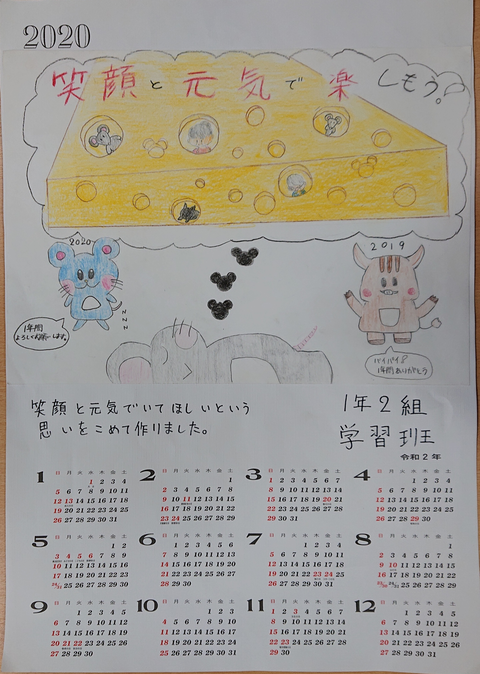 2020
笑顔と元気で楽しもう。
2020
2019
1年間
よろしくお願いします。
バイバイ
1年間ありがとう
笑顔と元気でいてほしいという
思いをこめて作りました。
1年2組
学習班
令和2年
1 日 月 火 水 木 金 土
1 2 3 4
5 6 7 8 9 10 11
12 13 14 15 16 17 18
19 20 21 22 23 24 25
26 27 28 29 30 31
2 日 月 火 水 木 金 土
1
2 3 4 5 6 7 8
9 10 11 12 13 14 15
16 17 18 19 20 21 22
23 24 25 26 27 28 29
3 日 月 火 水 木 金 土
1 2 3 4 5 6 7
8 9 10 11 12 13 14
15 16 17 18 19 20 21
22 23 24 25 26 27 28
29 30 31
4 日 月 火 水 木 金 土
1 2 3 4
5 6 7 8 9 10 11
12 13 14 15 16 17 18
19 20 21 22 23 24 25
26 27 28 29 30
5 日 月 火 水 木 金 土
1 2
3 4 5 6 7 8 9
10 11 12 13 14 15 16
17 18 19 20 21 22 23
24/31 25 26 27 28 29 30
6 日 月 火 水 木 金 土
1 2 3 4 5 6
7 8 9 10 11 12 13
14 15 16 17 18 19 20
21 22 23 24 25 26 27
28 29 30
7 日 月 火 水 木 金 土
1 2 3 4
5 6 7 8 9 10 11
12 13 14 15 16 17 18
19 20 21 22 23 24 25
26 27 28 29 30 31
8 日 月 火 水 木 金 土
1
2 3 4 5 6 7 8
9 10 11 12 13 14 15
16 17 18 19 20 21 22
23/30 24/31 25 26 27 28 29
9 日 月 火 水 木 金 土
1 2 3 4 5
6 7 8 9 10 11 12
13 14 15 16 17 18 19
20 21 22 23 24 25 26
27 28 29 30
10 日 月 火 水 木 金 土
1 2 3
4 5 6 7 8 9 10
11 12 13 14 15 16 17
18 19 20 21 22 23 24
25 26 27 28 29 30 31
11 日 月 火 水 木 金 土
1 2 3 4 5 6 7
8 9 10 11 12 13 14
15 16 17 18 19 20 21
22 23 24 25 26 27 28
29 30
12 日 月 火 水 木 金 土
1 2 3 4 5
6 7 8 9 10 11 12
13 14 15 16 17 18 19
20 21 22 23 24 25 26
27 28 29 30 31